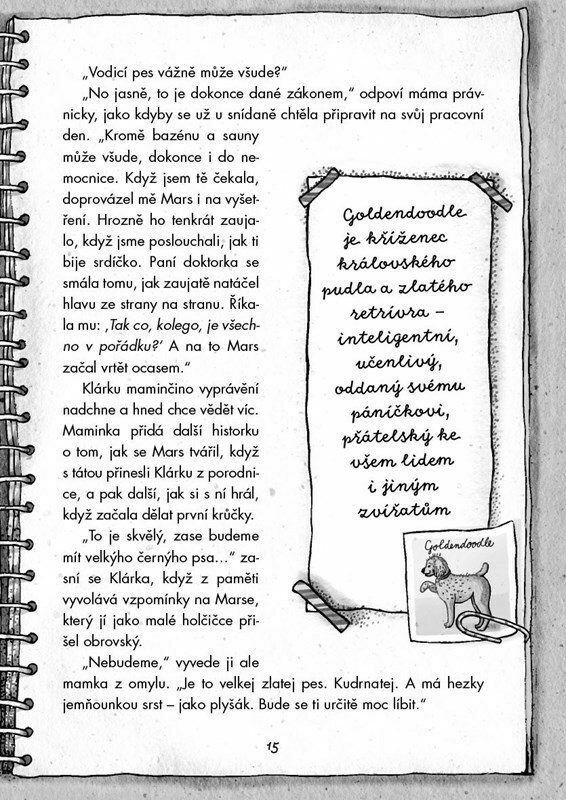 „Vodicí pes vážně může všude?“
„No jasně, to je dokonce dané zákonem,“ odpoví máma práv-
nicky, jako kdyby se už u snídaně chtěla připravit na svůj pracovní
den. „Kromě bazénu a sauny
může všude, dokonce i do ne-
mocnice. Když jsem tě čekala,
doprovázel mě Mars i na vyšet-
ření. Hrozně ho tenkrát zauja-
lo, když jsme poslouchali, jak ti
bije srdíčko. Paní doktorka se
smála tomu, jak zaujatě natáčel
hlavu ze strany na stranu. Říka-
la mu: ‚Tak co, kolego, je všech-
no v pořádku?‘ A na to Mars
začal vrtět ocasem.“
Klárku maminčino vyprávění
nadchne a hned chce vědět víc.
Maminka přidá další historku
o tom, jak se Mars tvářil, když
s tátou přinesli Klárku z porodni-
ce, a pak další, jak si s ní hrál,
když začala dělat první krůčky.
„To je skvělý, zase budeme
mít velkýho černýho psa…“ za-
sní se Klárka, když z paměti
vyvolává vzpomínky na Marse,
který jí jako malé holčičce při-
šel obrovský.
„Nebudeme,“ vyvede ji ale
mamka z omylu. „Je to velkej zlatej pes. Kudrnatej. A má hezky
jemňounkou srst – jako plyšák. Bude se ti určitě moc líbit.“
Goldendoodle
je kříženec
královského
pudla a zlatého
retrívra –
inteligentní,
učenlivý,
oddaný svému
páníčkovi,
přátelský ke
všem lidem
i jiným
zvířatům
Goldendoodle
15